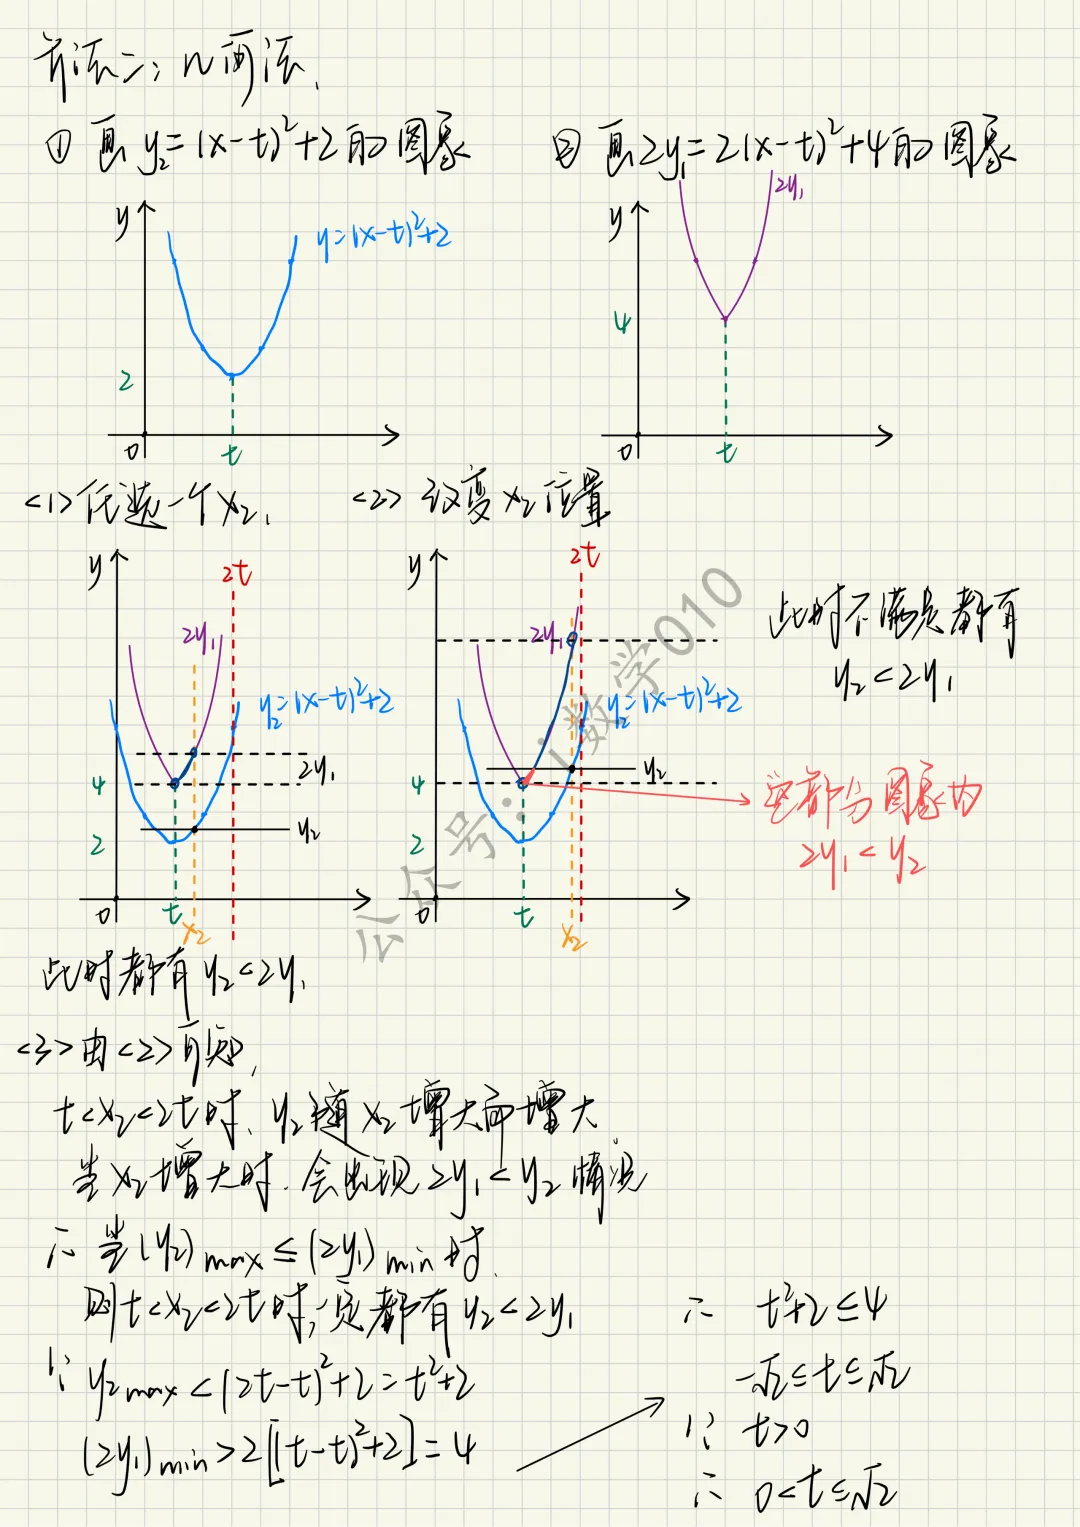 方法二:几何画法.
① 画y₂=(x-t)²+2的图象
② 画2y₁=2(x-t)²+4的图象
y
y=(x-t)²+2
2
0
t
y
2y₁
4
0
t
<1>任选一个x₂,
<2> 改变x₂位置
y
2t
2y₁
y₂=(x-t)²+2
4
2y₁
2
y₂
0
t
x₂
y
2t
2y₁
y₂=(x-t)²+2
4
y₂
2
0
t
x₂
此时不满足都有
y₂<2y₁
这部分图象为
2y₁<y₂
公众号:i数学010
此时都有y₂<2y₁
<3>由<2>可知,
t<x₂<2t时,y₂随x₂增大而增大
当x₂增大时.会出现2y₁<y₂情况
∴当(y₂)max≤(2y₁)min时
则t<x₂<2t时,一定都有y₂<2y₁
∵ y₂max<(2t-t)²+2=t²+2
(2y₁)min>2[(t-t)²+2]=4
∴ t²+2≤4
-√2≤t≤√2
∵ t>0
∴ 0<t≤√2